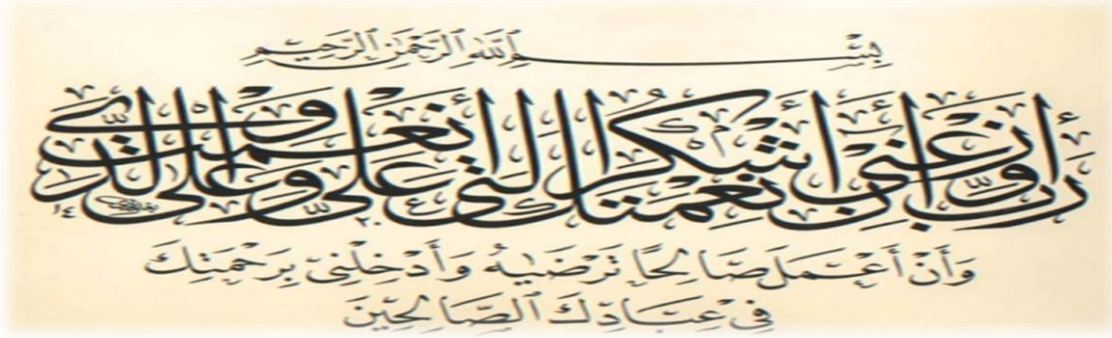 بِسْمِ ٱللَّهِ ٱلرَّحْمَٰنِ ٱلرَّحِيمِ
رَبِّ أَوْزِعْنِي أَنْ أَشْكُرَ نِعْمَتَكَ الَّتِي أَنْعَمْتَ عَلَيَّ وَعَلَى وَالِدَيَّ
وَأَنْ أَعْمَلَ صَالِحًا تَرْضَيٰهُ وَأَدْخِلْنِي بِرَحْمَتِكَ
فِي عِبَادِكَ ٱلصَّالِحِينَ